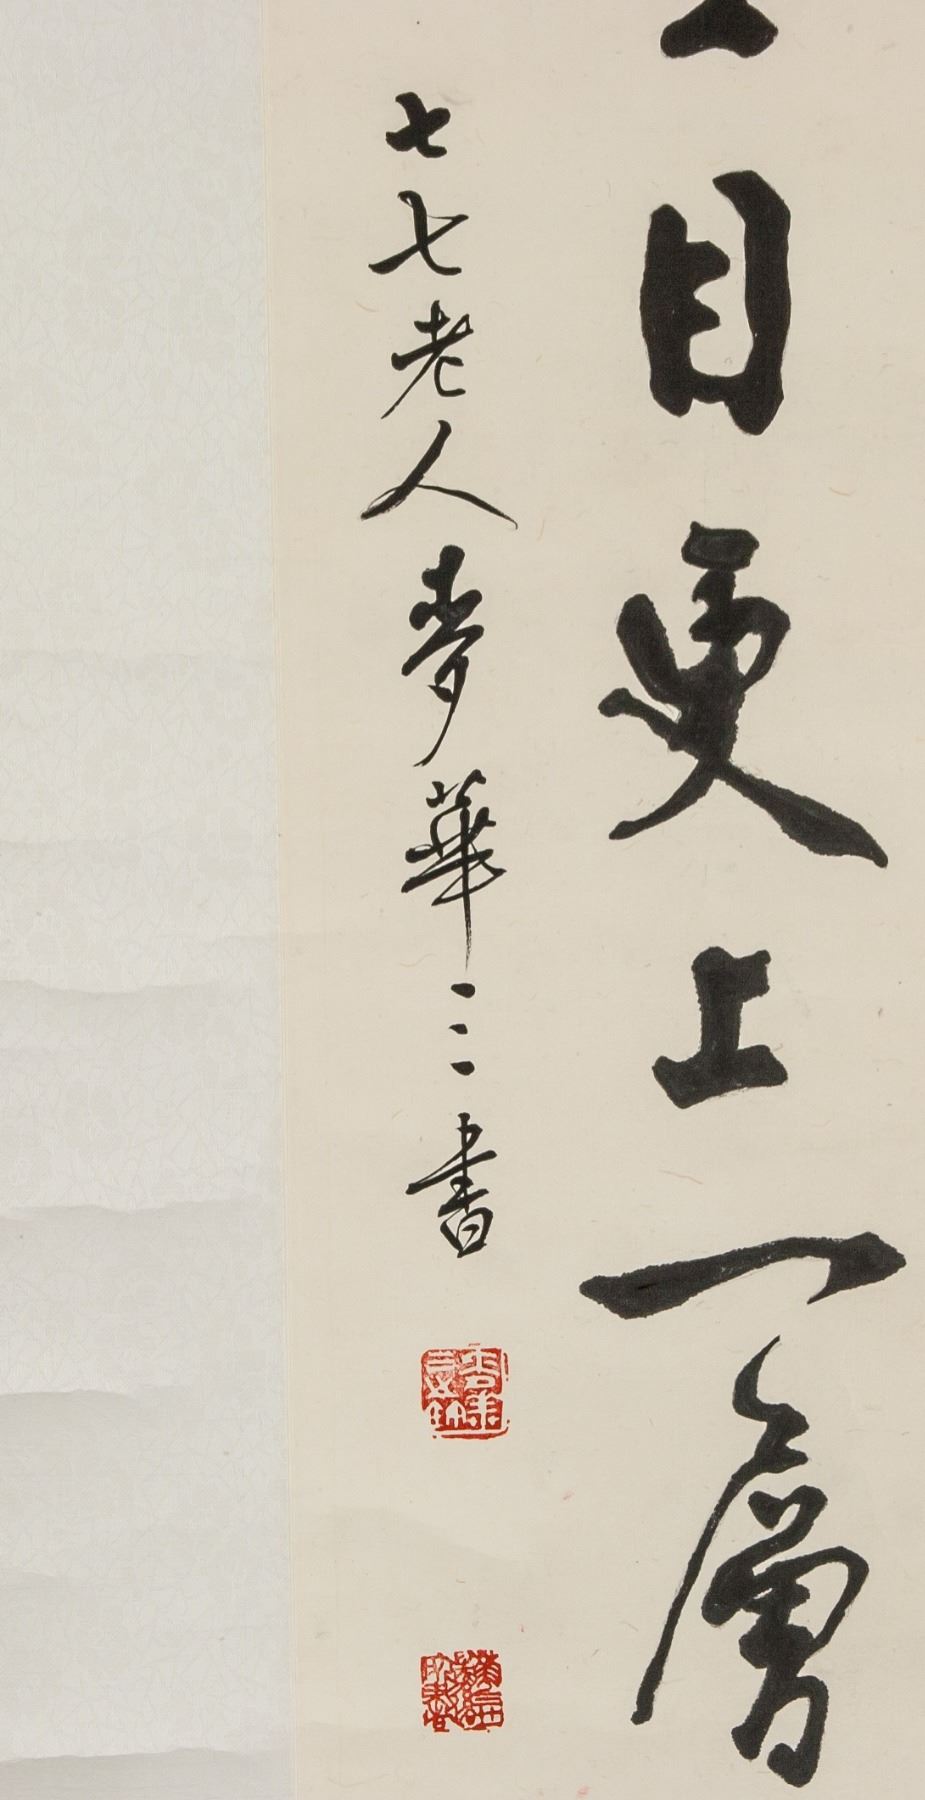 目更上一層
七七老人麥華三書